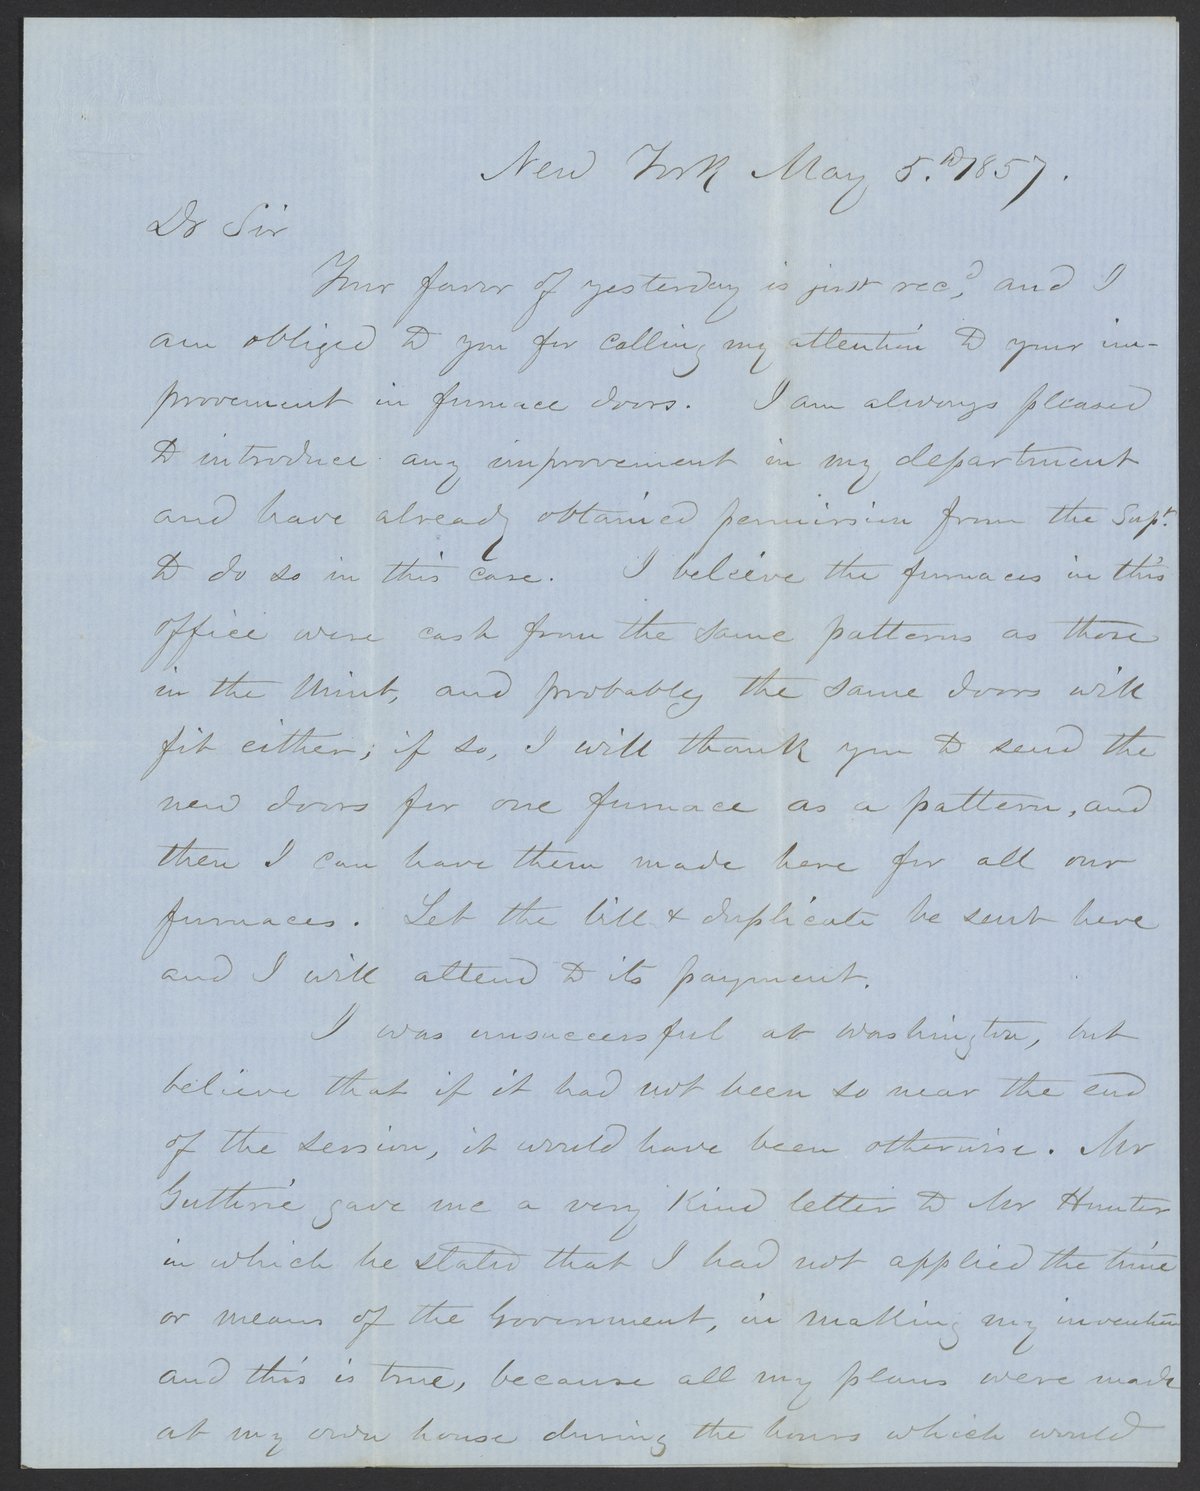 New York May 5.th 1857.
Dr Sir
Your favor of yesterday is just recd, and I
am obliged to you for calling my attention to your im-
provement in furnace doors. I am always pleased
to introduce any improvement in my department
and have already obtained permission from the Supt.
to do so in this case. I beleive the furnaces in this
office were cast from the same patterns as those
in the Mint, and probably the same doors will
fit either; if so, I will thank you to send the
new doors for one furnace as a pattern, and
then I can have them made here for all our
furnaces. Let the bill & duplicate be sent here
and I will attend to its payment.
I was unsuccessful at Washington, but
believe that if it had not been so near the end
of the session, it would have been otherwise. Mr
Guthrie gave me a very kind letter to Mr Hunter
in which he stated that I had not applied the time
or means of the Government, in making my invention
and this is true, because all my plans were made
at my own house during the hours which would